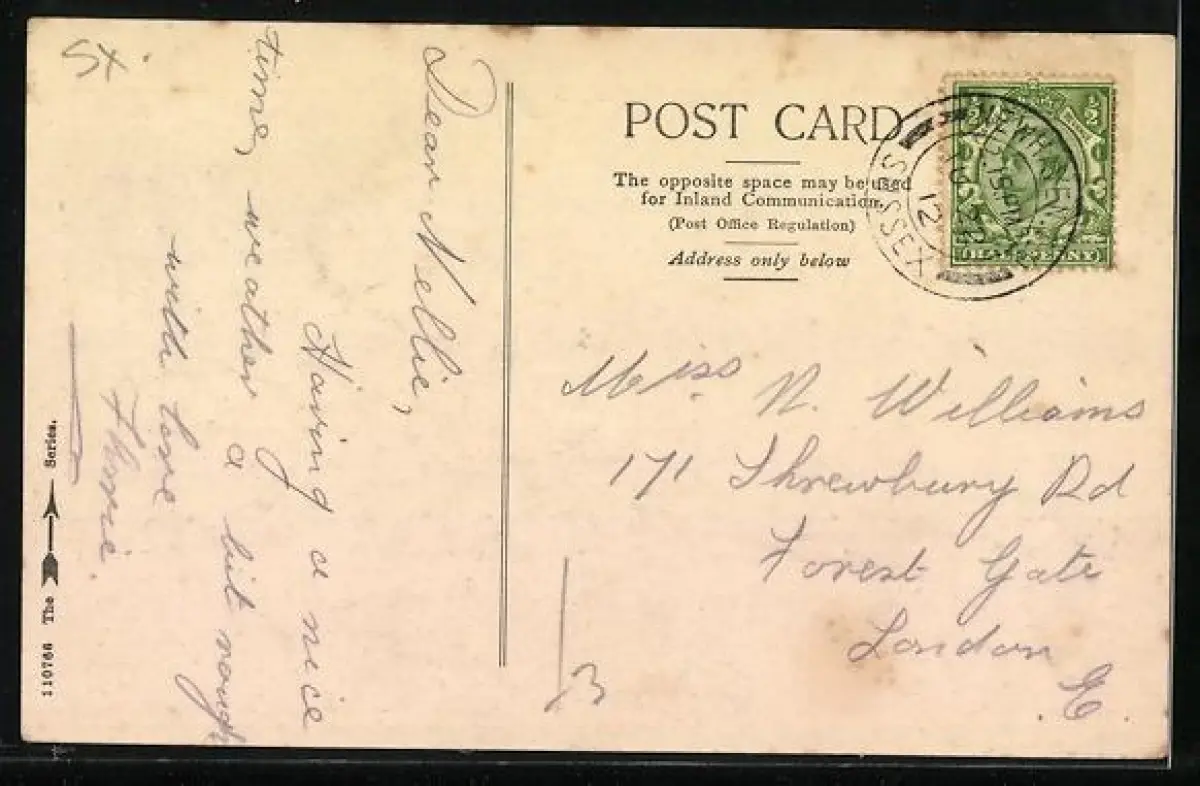 Dear Nellie,
Having a nice
time, weather a bit rough
with love
POST CARD
The opposite space may be used
for Inland Communication.
(Post Office Regulation)
Address only below
½ ½
HALFPENNY
NEWHAVEN
SUSSEX
12
Miss N. Williams
171 Shrewbury Rd
Forest Gate
London
E.
110766 The Series.